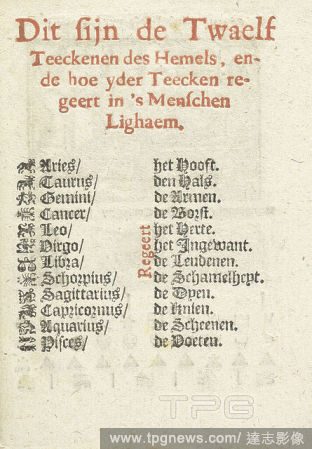 Dit sijn de Twaelf
Teeckenen des Hemels, en-
de hoe yder Teecken re-
geert in 's Menschen
Lighaem.
Aries/ het Hooft.
Taurus/ den Hals.
Gemini/ de Armen.
Cancer/ de Borst.
Leo/ het Herte.
Virgo/ het Ingewant.
Libra/ de Lendenen.
Schorpius/ de Schamelheyt.
Sagittarius/ de Dyen.
Capricornius/ de Knien.
Aquarius/ de Scheenen.
Pisces/ de Voeten.
Regeert
TPG
www.tpgnews.com/ 達志影像